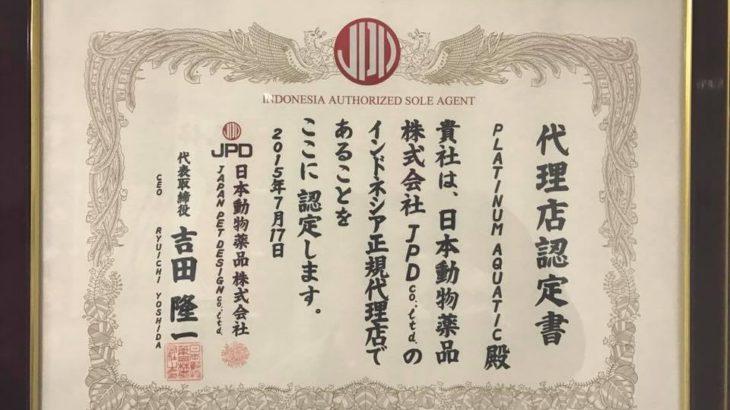 JPD
INDONESIA AUTHORIZED SOLE AGENT
代理店認定書
PLATINUM AQUATIC殿
貴社は、日本動物薬品
株式会社 JPD co.,ltd.の
インドネシア正規代理店で
あることを
ここに認定します。
2015年7月17日
JPD 日本動物薬品株式会社
JAPAN PET DESIGN co., ltd.
代表取締役 吉田 隆一
CEO RYUICHI YOSHIDA